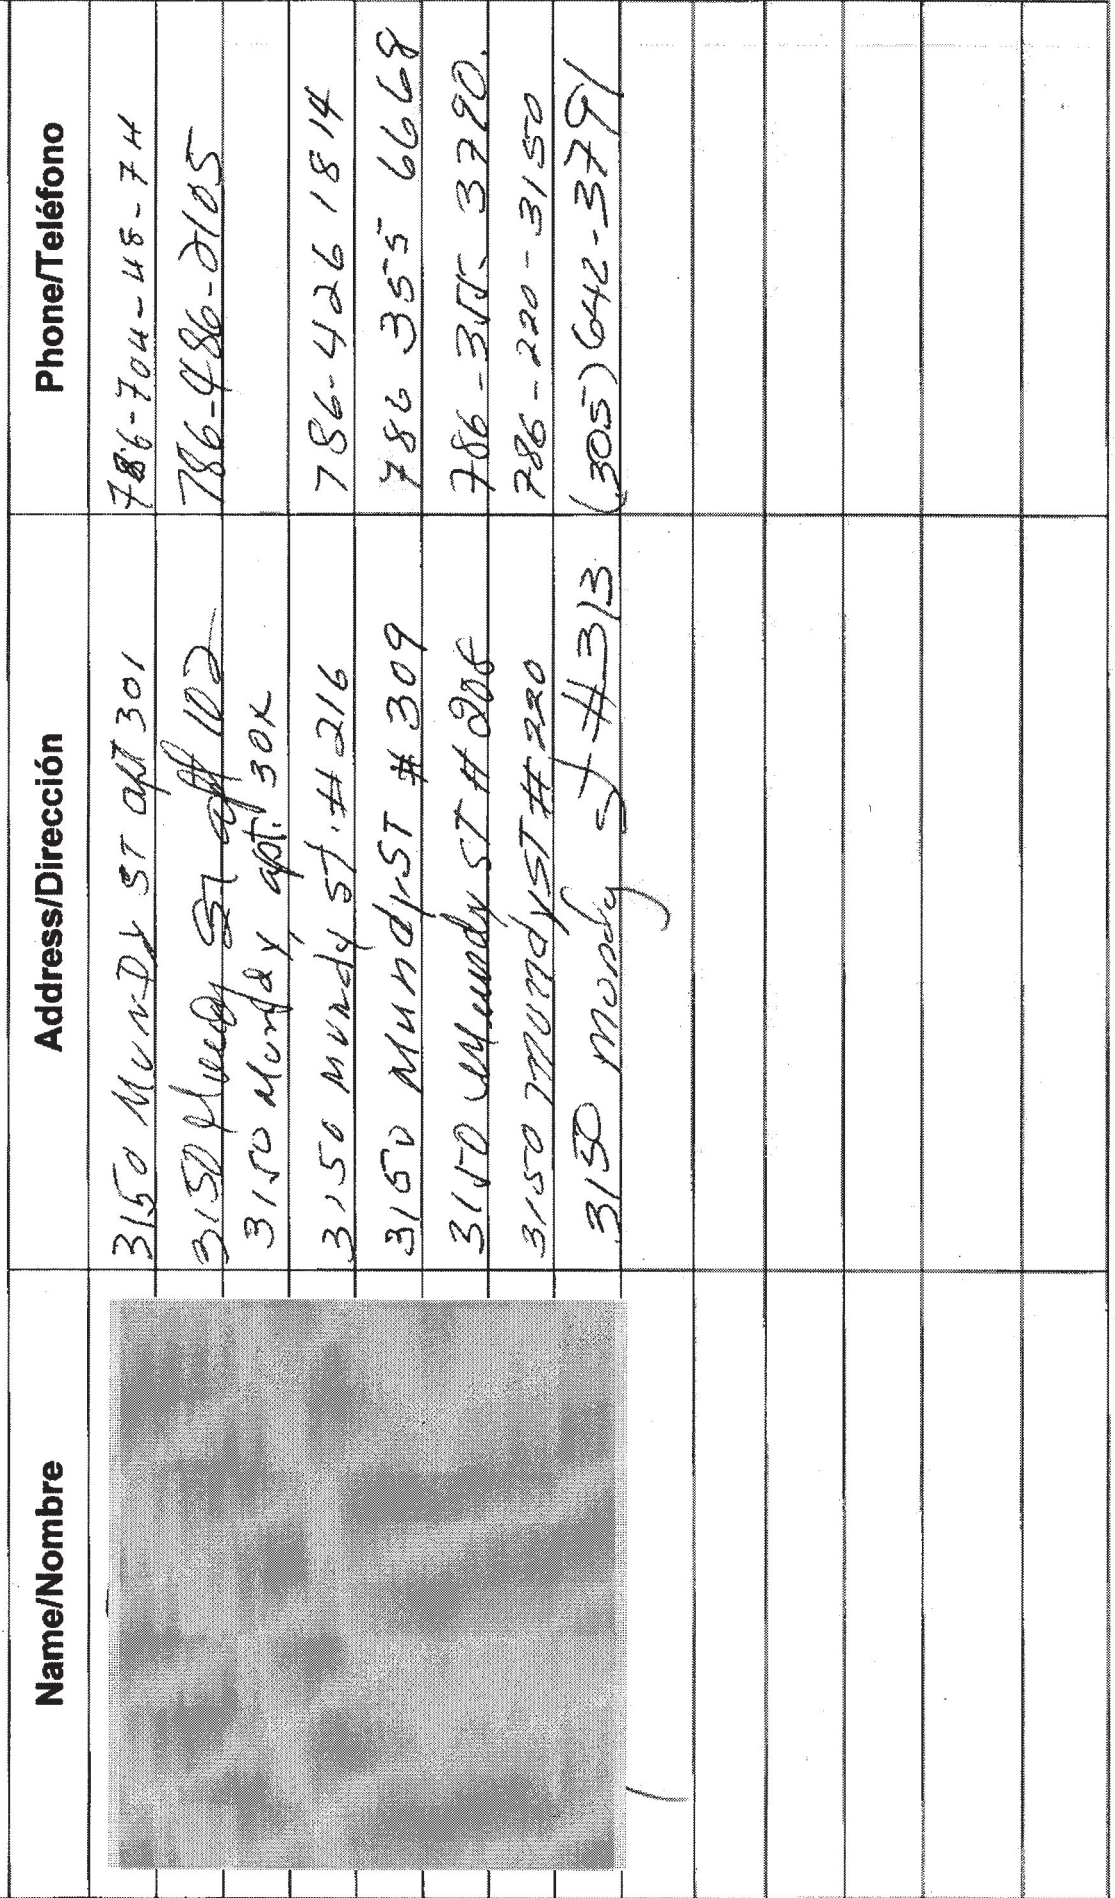 Name/Nombre Address/Dirección Phone/Teléfono
3150 MunDy ST apt 301 786-704-48-74
3150 Mundy St apt 102 786-486-2105
3150 Mundy, apt.
3150 Mundy St. # 216 786-426 1814
3150 Mundy ST # 309 786 355 6668
3150 Mundy ST # 208 786-355-3790.
3150 Mundy ST # 220 786-220-3150
3150 Mundy St # 313 (305) 642-3791